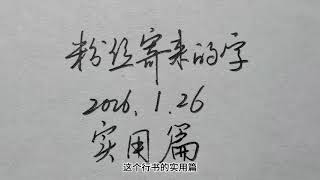 粉丝寄来的字
2026.1.26
实用篇
这个行书的实用篇